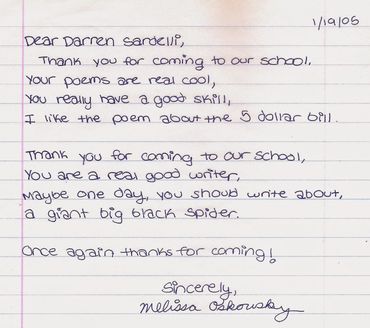 1/19/05
Dear Darren Sardelli,
Thank you for coming to our school,
Your poems are real cool,
You really have a good skill,
I like the poem about the 5 dollar bill.
Thank you for coming to our school,
You are a real good writer,
Maybe one day, you shoud write about,
a giant big black spider.
Once again thanks for coming!
Sincerely,
Melissa Oskowsky